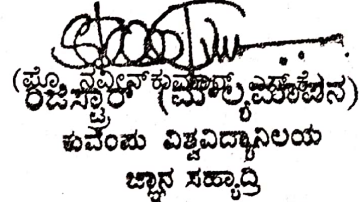 (ಪ್ರೊ. ನವೀನ್ ಕುಮಾರ್ ಎಸ್.ಕೆ)
ರಿಜಿಸ್ಟ್ರಾರ್ (ಮೌಲ್ಯಮಾಪನ)
ಕುವೆಂಪು ವಿಶ್ವವಿದ್ಯಾನಿಲಯ
ಜ್ಞಾನ ಸಹ್ಯಾದ್ರಿ